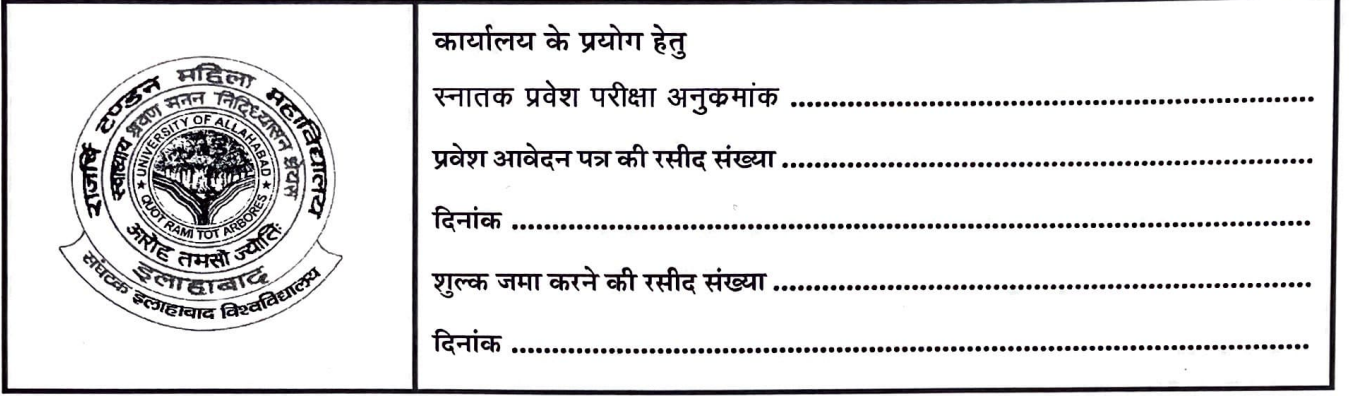 राजर्षि टण्डन महिला महाविद्यालय
स्वाध्याय श्रवण मनन निदिध्यासन
UNIVERSITY OF ALLAHABAD
QUOT RAMI TOT ARBORES
आरोह तमसो ज्योतिः
इलाहाबाद
संघटक इलाहाबाद विश्वविद्यालय
कार्यालय के प्रयोग हेतु
स्नातक प्रवेश परीक्षा अनुक्रमांक ........................................
प्रवेश आवेदन पत्र की रसीद संख्या ........................................
दिनांक ........................................
शुल्क जमा करने की रसीद संख्या ........................................
दिनांक ........................................